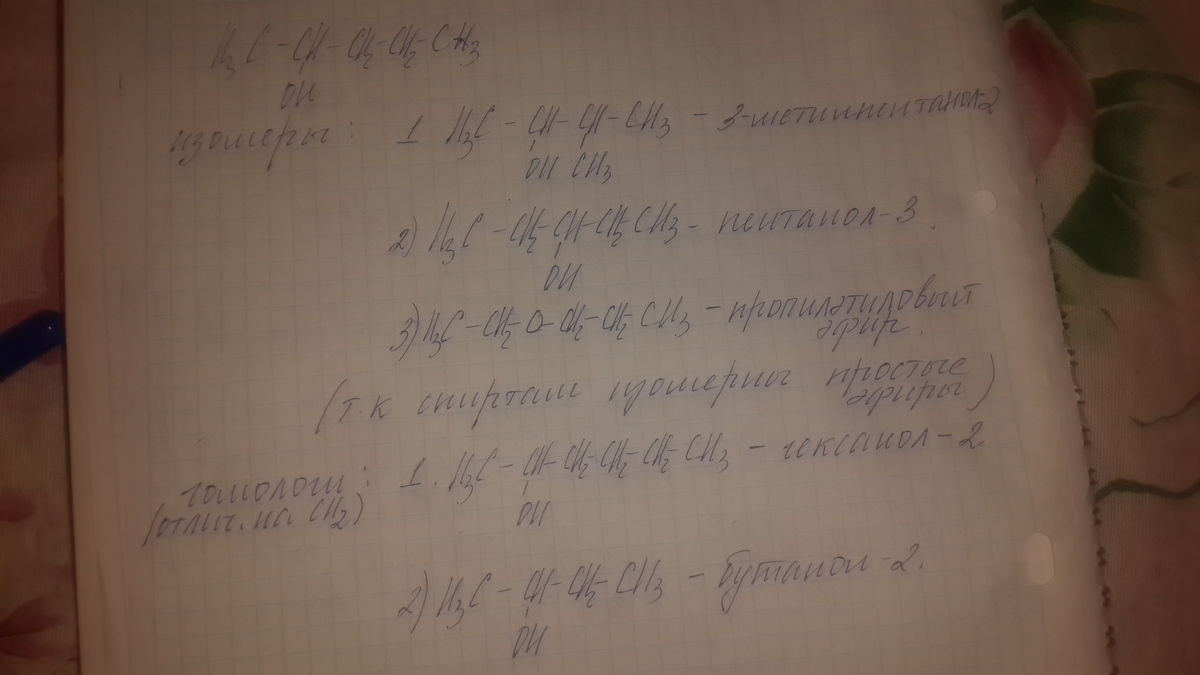 H₃C - CH - CH₂ - CH₂ - CH₃
OH
изомеры: 1 H₃C - CH - CH - CH₃ - 3-метилпентанол-2
OH CH₃
2) H₃C - CH₂ - CH - CH₂ CH₃ - пентанол-3.
OH
3) H₃C - CH₂ - O - CH₂ - CH₂ CH₃ - пропилэтиловый
эфир.
(т.к спиртам изомерны простые
эфиры)
гомологи: 1. H₃C - CH - CH₂ - CH₂ - CH₂ - CH₃ - гексанол-2
(отлич. на CH₂)
OH
2) H₃C - CH - CH₂ - CH₃ - бутанол-2.
OH